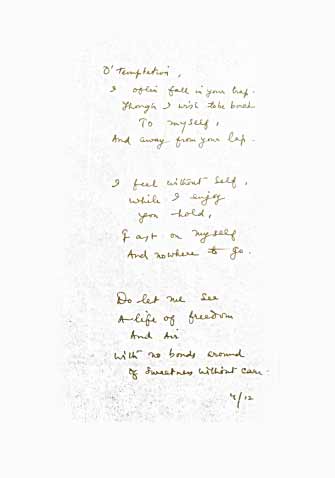 O' Temptation,
I often fall in your trap.
Though I wish to be back
To myself,
And away from your lap.
I feel without self,
While I enjoy
your hold,
fast on myself
And nowhere to go.
Do let me see
A life of freedom
And Air
with no bonds around
Of Sweetness without care.
4/12